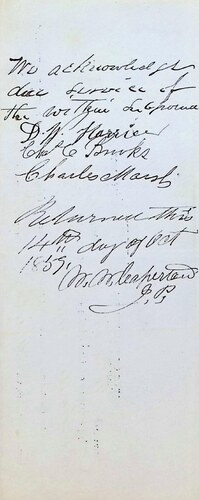 We acknowledge
due service of
the within subpoena
D. W.
Chs C Banks
Charles Marsh
Returned this
14th day of Oct
1859,
W. W.
J. P.